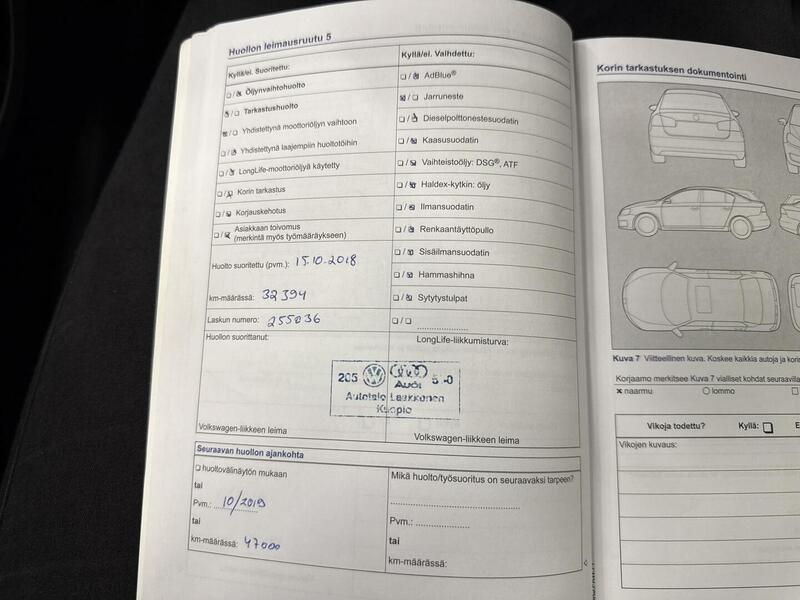 Huollon leimausruutu 5
Kyllä/ei. Suoritettu:
☐ / ☒ Öljynvaihtohuolto
☒ / ☐ Tarkastushuolto
☒ / ☐ Yhdistettynä moottoriöljyn vaihtoon
☐ / ☒ Yhdistettynä laajempiin huoltotöihin
☐ / ☒ LongLife-moottoriöljyä käytetty
☐ / ☒ Korin tarkastus
☐ / ☒ Korjauskehotus
☐ / ☒ Asiakkaan toivomus
(merkintä myös työmääräykseen)
Huolto suoritettu (pvm.): 15.10.2018
km-määrässä: 32394
Laskun numero: 255036
Huollon suorittanut:
Volkswagen-liikkeen leima
Kyllä/ei. Vaihdettu:
☐ / ☒ AdBlue®
☒ / ☐ Jarruneste
☐ / ☒ Dieselpolttonestesuodatin
☐ / ☒ Kaasusuodatin
☐ / ☒ Vaihteistoöljy: DSG®, ATF
☐ / ☒ Haldex-kytkin: öljy
☐ / ☒ Ilmansuodatin
☐ / ☒ Renkaantäyttöpullo
☐ / ☒ Sisäilmansuodatin
☐ / ☒ Hammashihna
☐ / ☒ Sytytystulpat
☐ / ☐ ....................
LongLife-liikkumisturva:
205 Audi
Autotalo Laakkonen
Kuopio
Volkswagen-liikkeen leima
Seuraavan huollon ajankohta
☐ huoltovälinäytön mukaan
tai
Pvm.: 10/2019
tai
km-määrässä: 47000
Mikä huolto/työsuoritus on seuraavaksi tarpeen?
Pvm.: ....................
tai
km-määrässä:
Korin tarkastuksen dokumentointi
Kuva 7 Viitteellinen kuva. Koskee kaikkia autoja ja
Korjaamo merkitsee Kuva 7 vialliset kohdat
× naarmu ○ lommo ☐
Vikoja todettu? Kyllä: ☐
Vikojen kuvaus: